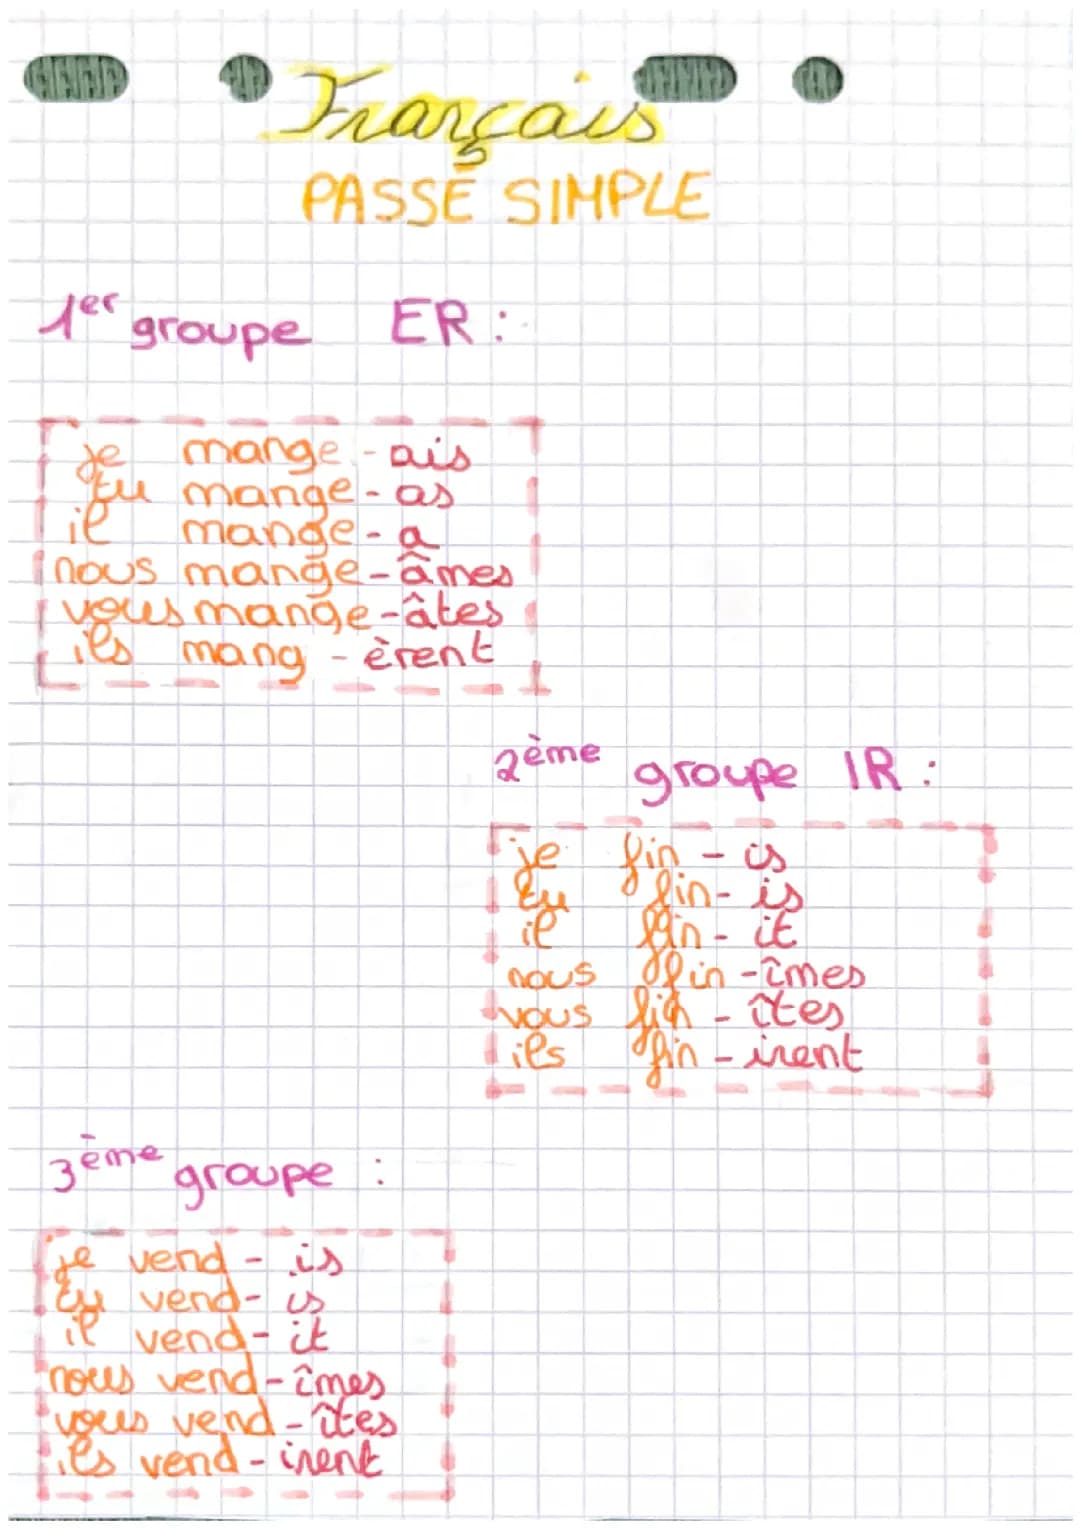 Français
PASSÉ SIMPLE
1er groupe ER :
je mange - ais
tu mange - as
il mange - a
nous mange - âmes
vous mange - âtes
ils mang - èrent
2ème groupe IR :
je fin - is
tu fin - is
il fin - it
nous fin - îmes
vous fin - îtes
ils fin - irent
3ème groupe :
je vend - is
tu vend - is
il vend - it
nous vend - îmes
vous vend - îtes
ils vend - irent